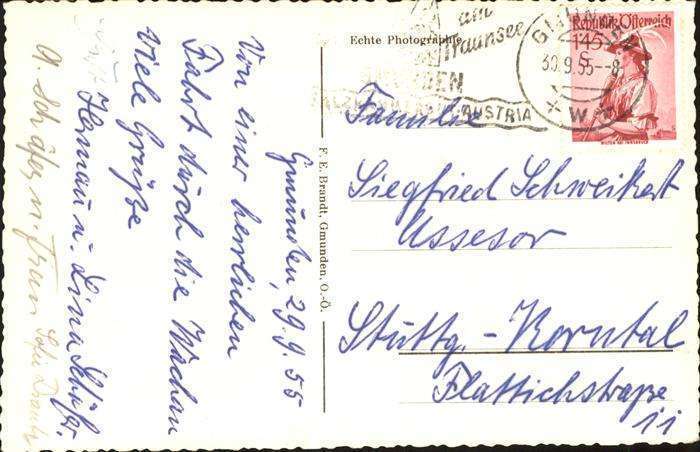 Gmunden, 29.9.55
Von einer herrlichen
Fahrt durch die Wachau
viele Grüße
Herman u. Lina Schäfer.
A. Schäfer u. Frau
Echte Photographie
F. E. Brandt, Gmunden, O.-Ö.
am
Traunsee
AUSTRIA
30.9.55--8
W
Republik Österreich
1.45
S
Familie
Siegfried Schweikert
Assesor
Stuttg.-Korntal
Flattichstraße
11